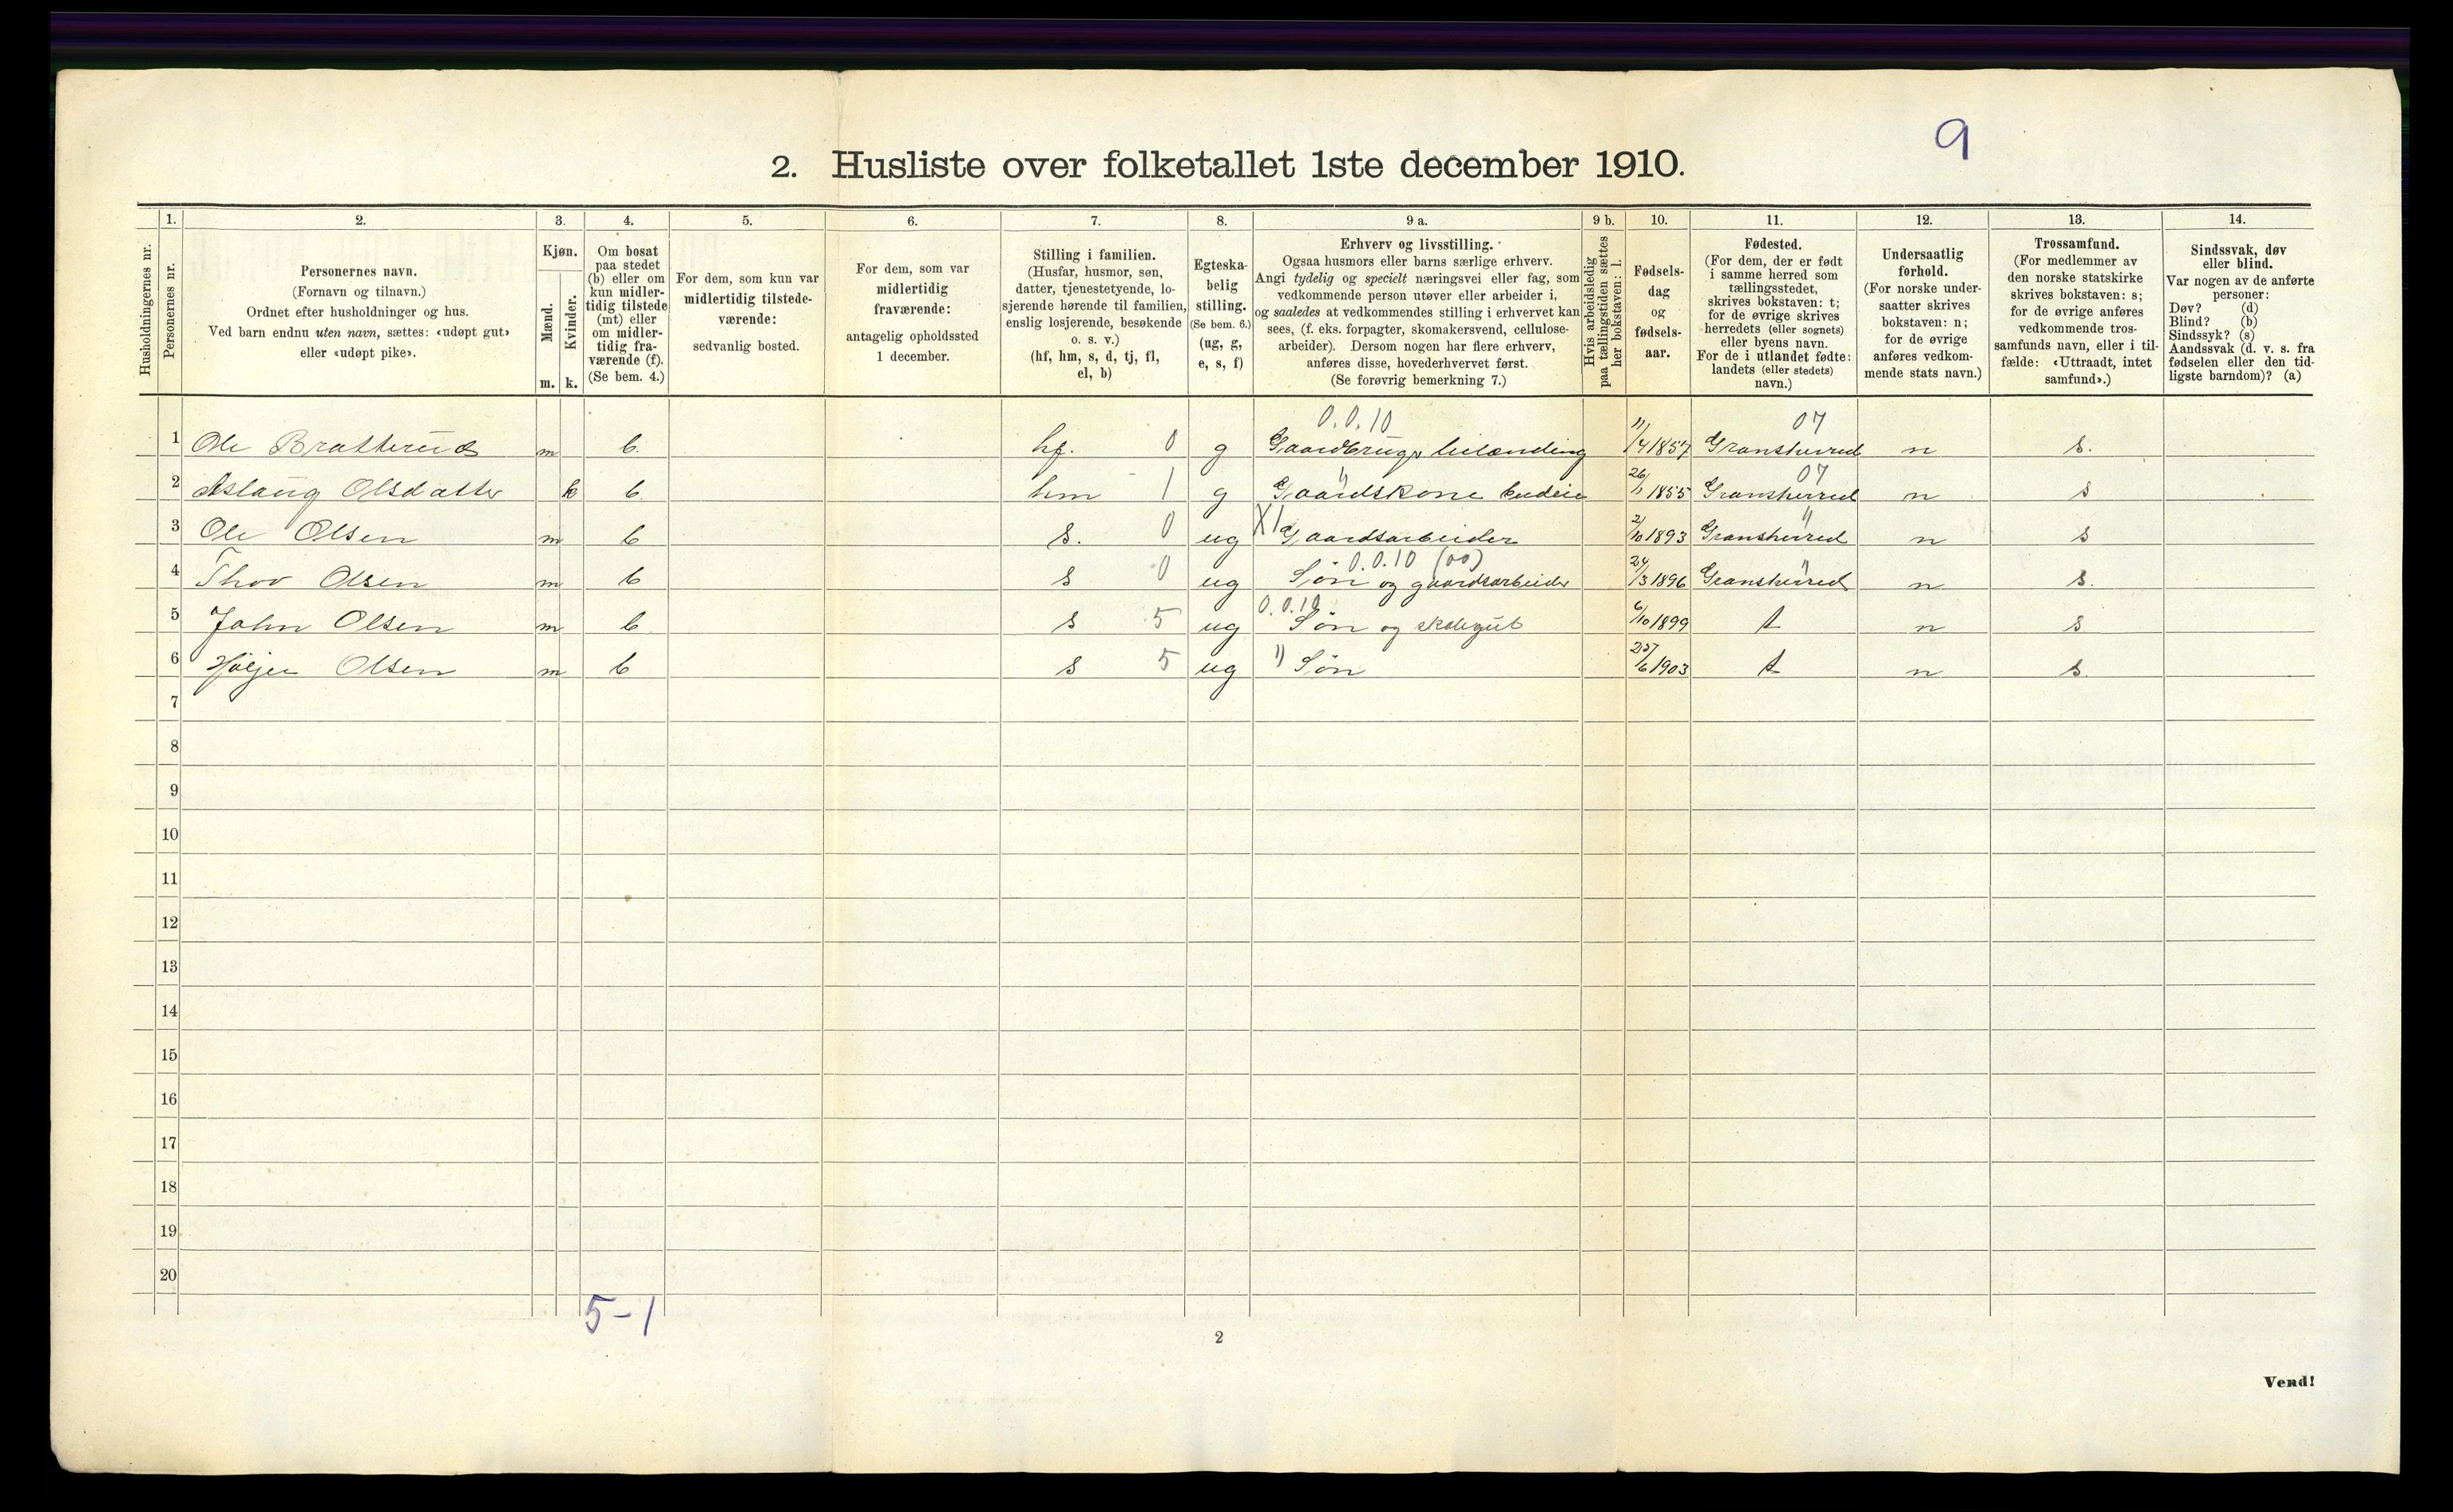 9
2. Husliste over folketallet 1ste december 1910.
Husholdningernes nr.
1. Personernes nr.
2. Personernes navn.
(Fornavn og tilnavn.)
Ordnet efter husholdninger og hus.
Ved barn endnu uten navn, sættes: «udøpt gut»
eller «udøpt pike».
3. Kjøn.
Mænd. Kvinder.
m. k.
4. Om bosat
paa stedet
(b) eller om
kun midler-
tidig tilstede
(mt) eller
om midler-
tidig fra-
værende (f).
(Se bem. 4.)
5. For dem, som kun var
midlertidig tilstede-
værende:
sedvanlig bosted.
6. For dem, som var
midlertidig
fraværende:
antagelig opholdssted
1 december.
7. Stilling i familien.
(Husfar, husmor, søn,
datter, tjenestetyende, lo-
sjerende hørende til familien,
enslig losjerende, besøkende
o. s. v.)
(hf, hm, s, d, tj, fl,
el, b)
8. Egteska-
belig
stilling.
(Se bem. 6.)
(ug, g,
e, s, f)
9 a. Erhverv og livsstilling.
Ogsaa husmors eller barns særlige erhverv.
Angi tydelig og specielt næringsvei eller fag, som
vedkommende person utøver eller arbeider i,
og saaledes at vedkommendes stilling i erhvervet kan
sees, (f. eks. forpagter, skomakersvend, cellulose-
arbeider). Dersom nogen har flere erhverv,
anføres disse, hovederhvervet først.
(Se forøvrig bemerkning 7.)
9 b. Hvis arbeidsledig
paa tællingstiden sættes
her bokstaven: l.
10. Fødsels-
dag
og
fødsels-
aar.
11. Fødested.
(For dem, der er født
i samme herred som
tællingsstedet,
skrives bokstaven: t;
for de øvrige skrives
herredets (eller sognets)
eller byens navn.
For de i utlandet fødte:
landets (eller stedets)
navn.)
12. Undersaatlig
forhold.
(For norske under-
saatter skrives
bokstaven: n;
for de øvrige
anføres vedkom-
mende stats navn.)
13. Trossamfund.
(For medlemmer av
den norske statskirke
skrives bokstaven: s;
for de øvrige anføres
vedkommende tros-
samfunds navn, eller i til-
fælde: «Uttraadt, intet
samfund».)
14. Sindssvak, døv
eller blind.
Var nogen av de anførte
personer:
Døv? (d)
Blind? (b)
Sindssyk? (s)
Aandssvak (d. v. s. fra
fødselen eller den tid-
ligste barndom)? (a)
0.0.10 07
1 Ole Bratterud m b. hf. 0 g Gaardbrugs leilænding 11/4 1857 Gransherred n s.
" 07
2 Aslaug Olsdatter k b. hm - 1 g Gaardskone budeie 1855 Gransherred n s
"
3 Ole Olsen m b s. 0 ug X1 Gaardsarbeider 2/10 1893 Gransherred n s
0.0.10 (00) "
4 Thov Olsen m b s 0 ug Søn og gaardsarbeider 24/3 1896 Gransherred n s.
0.0.10
5 John Olsen m b s 5 ug Søn og skolegut 6/10 1899 t n s
6 Høljer Olsen m b s 5 ug " Søn 1903 t n s.
7
8
9
10
11
12
13
14
15
16
17
18
19
20
5-1
2
Vend!